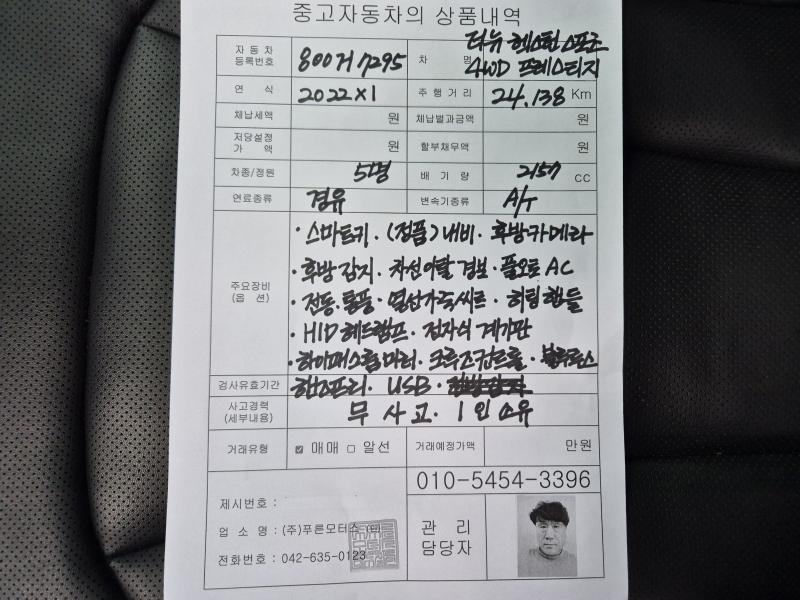 중고자동차의 상품내역
자동차 등록번호 800거7295 차 명 더뉴 렉스턴스포츠 4WD 프레스티지
연 식 2022×1 주행거리 24,138 Km
체납세액 원 체납벌과금액 원
저당설정 가 액 원 할부채무액 원
차종/정원 5명 배 기 량 2157 CC
연료종류 경유 변속기종류 A/T
주요장비 (옵 션)
·스마트키·(정품)내비·후방카메라
·후방감지·차선이탈경보·풀오토AC
·전동.통풍·열선가죽씨트·히팅핸들
·HID헤드램프·전자식 계기판
·하이패스룸미러·크루즈컨트롤·블루투스
검사유효기간 핸즈프리·USB·
사고경력 (세부내용) 무사고. 1인소유
거래유형 ☑ 매매 □ 알선 거래예정가액 만원
010-5454-3396
제시번호 :
업 소 명 : (주)푸른모터스 (인)
전화번호 : 042-635-0123
관 리
담당자